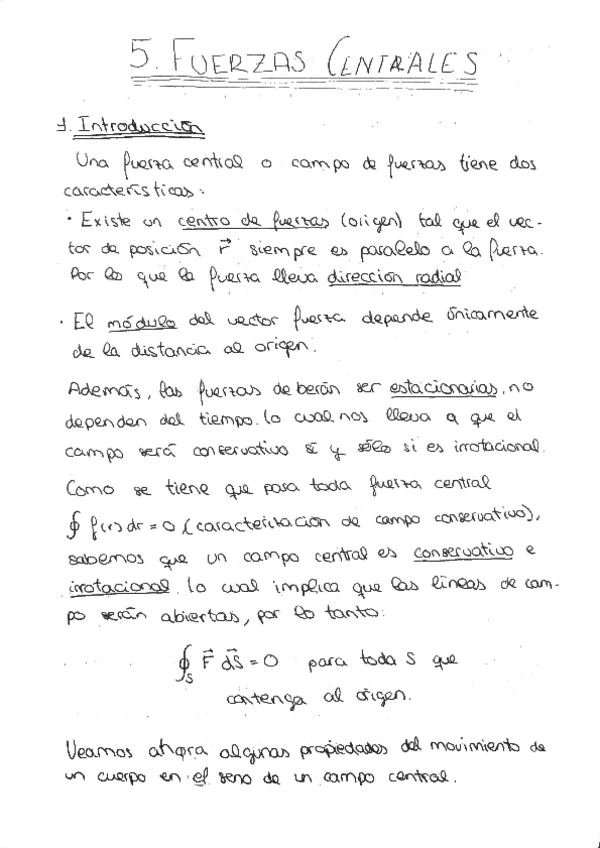 5. FUERZAS CENTRALES
1. Introducción
Una fuerza central o campo de fuerzas tiene dos
características:
· Existe un centro de fuerzas (origen) tal que el vec-
tor de posición r⃗ siempre es paralelo a la fuerza.
Por lo que la fuerza lleva dirección radial
· El módulo del vector fuerza depende únicamente
de la distancia al origen.
Además, las fuerzas deberán ser estacionarias, no
dependen del tiempo. lo cual nos lleva a que el
campo será conservativo si y sólo si es irrotacional.
Como se tiene que para toda fuerza central
∮ f(r) dr = 0 (caracterización de campo conservativo),
sabemos que un campo central es conservativo e
irrotacional. lo cual implica que las líneas de cam-
po serán abiertas, por lo tanto:
∮s F⃗ dS⃗ = 0 para toda S que
contenga al origen.
Veamos ahora algunas propiedades del movimiento de
un cuerpo en el seno de un campo central.